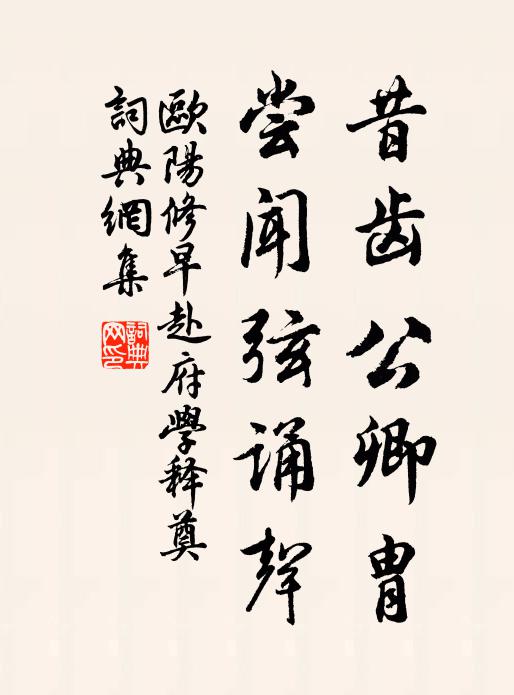 昔齿公卿胄
尝闻弦诵聲
歐陽修早赴府學释奠
詞典網集
詞典网印